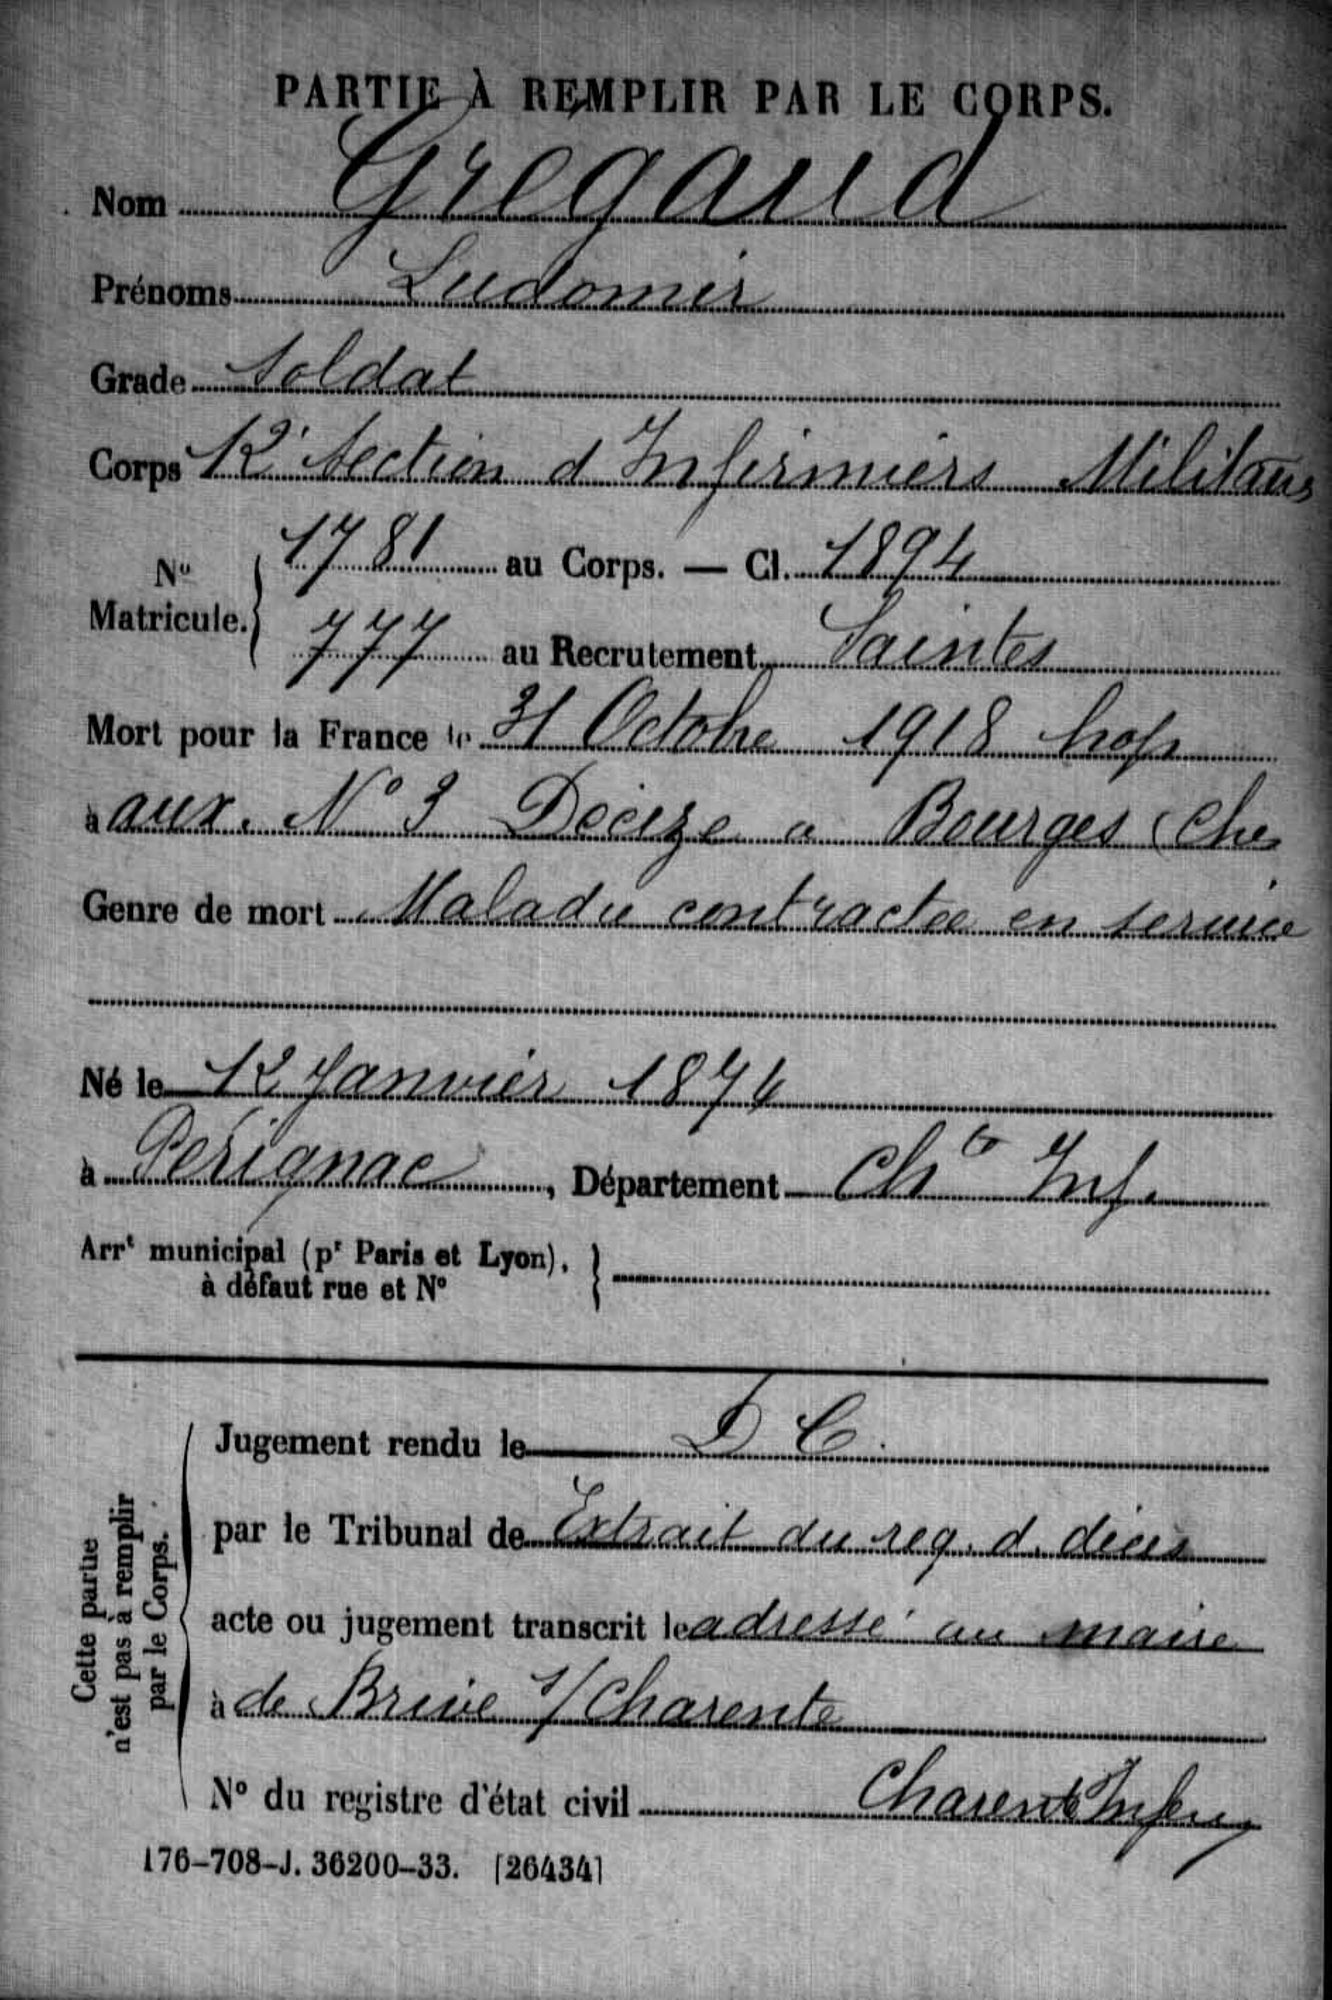 PARTIE À REMPLIR PAR LE CORPS.
Nom Grégaud
Prénoms Ludomir
Grade Soldat
Corps 12e Section d Infirmiers Militaires
No Matricule. 1781 au Corps. — Cl. 1894
777 au Recrutement Saintes
Mort pour la France le 31 Octobre 1918 hop
à aux. No 3 Décize a Bourges (Cher
Genre de mort Maladie contractée en service
Né le 12 Janvier 1874
à Pérignac, Département Chte Inf.
Arrt municipal (pr Paris et Lyon),
à défaut rue et No
Cette partie
n'est pas à remplir
par le Corps.
Jugement rendu le D C.
par le Tribunal de Extrait du reg. d. décès
acte ou jugement transcrit le adressé au maire
à de Brive s/ Charente
No du registre d'état civil Charente Infer
176-708-J. 36200-33. [26434]